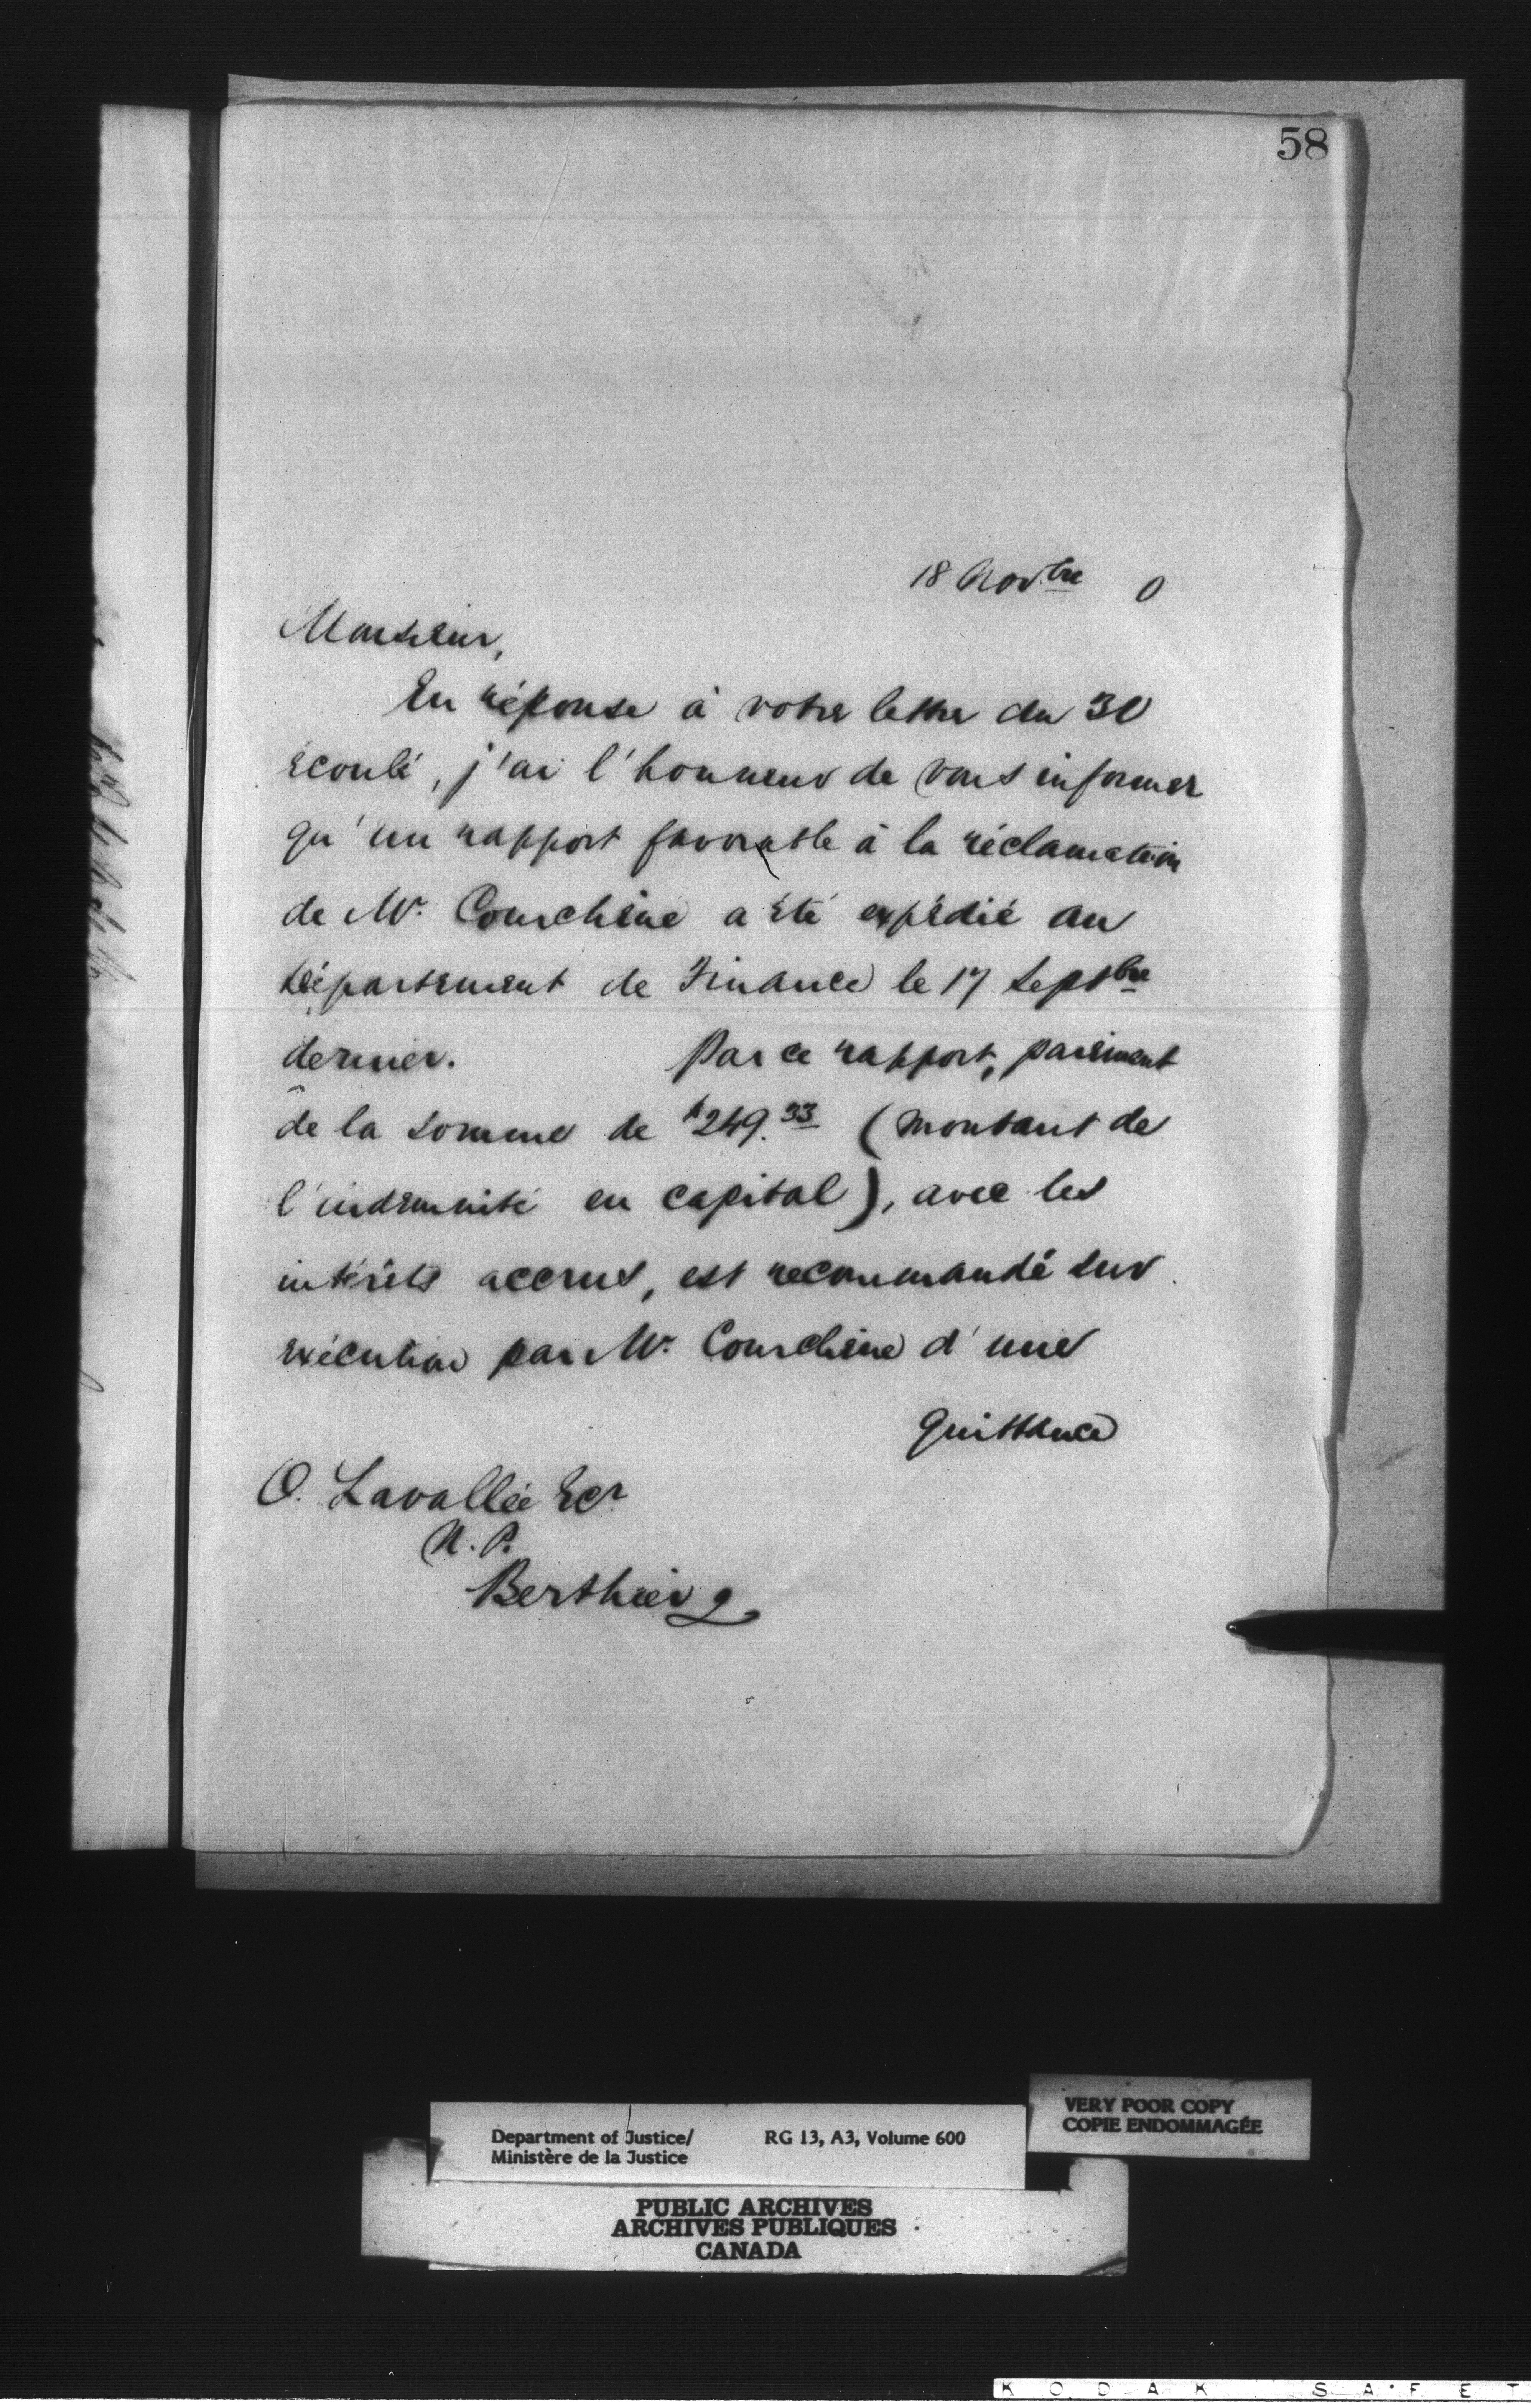 58
18 Novbre 0
Monsieur,
En réponse à votre lettre du 30
écoulé, j'ai l'honneur de vous informer
qu'un rapport favorable à la réclamation
de Mr. Courchêne a été expédié au
département de Finance le 17 Septbre
dernier. Par ce rapport, paiement
de la somme de $249.33 (montant de
l'indemnité en capital), avec les
intérêts accrus, est recommandé sur
exécution par Mr. Courchêne d'une
quittance
O. Lavallée Ecr
N.P.
Berthier
VERY POOR COPY
COPIE ENDOMMAGÉE
Department of Justice/ RG 13, A3, Volume 600
Ministère de la Justice
PUBLIC ARCHIVES
ARCHIVES PUBLIQUES
CANADA
KODAK SAFET